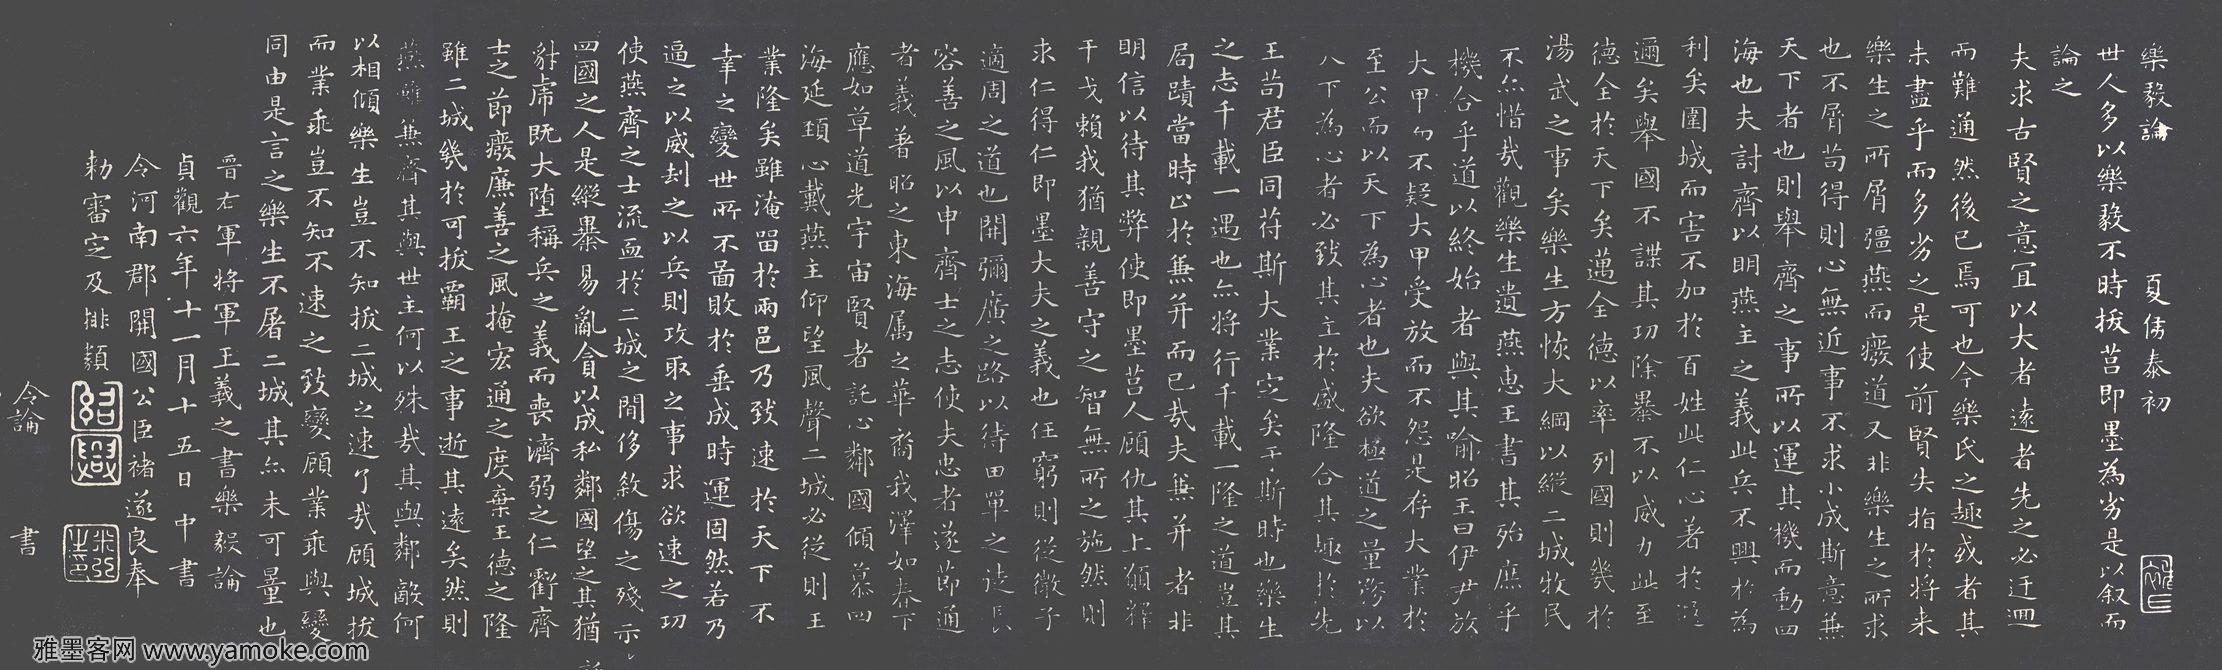 樂毅論 夏侯泰初
世人多以樂毅不時拔莒即墨為劣是以叙而
論之
夫求古賢之意冝以大者遠者先之必迂迴
而難通然後已焉可也今樂氏之趣或者其
未盡乎而多劣之是使前賢失指於将来
樂生之所屑彊燕而廢道又非樂生之所求
也不屑苟得則心無近事不求小成斯意兼
天下者也則舉齊之事所以運其機而動四
海也夫討齊以明燕主之義此兵不興於為
利矣圍城而害不加於百姓此仁心著於遐
邇矣舉國不謀其功除暴不以威力此至
德全於天下矣邁全德以率列國則幾於
湯武之事矣樂生方恢大綱以縱二城牧民
不亦惜哉觀樂生遺燕惠王書其殆庶乎
機合乎道以終始者與其喻昭王曰伊尹放
大甲而不疑大甲受放而不怨是存大業於
至公而以天下為心者也夫欲極道之量務以
天下為心者必致其主於盛隆合其趣於先
王苟君臣同苻斯大業定矣于斯時也樂生
之志千載一遇也亦將行千載一隆之道豈其
局蹟當時止於兼并而已哉夫兼并者非
明信以待其弊使即墨莒人顧仇其上願釋
干戈賴我猶親善守之智無所之施然則
求仁得仁即墨大夫之義也任窮則從微子
適周之道也開彌廣之路以待田單之徒長
容善之風以申齊士之志使夫忠者遂節通
者義著昭之東海属之華裔我澤如春下
應如草道光宇宙賢者託心鄰國傾慕四
海延頚心戴燕主仰望風聲二城必從則王
業隆矣雖淹留於兩邑乃致速於天下不
幸之變世所不圖敗於垂成時運固然若乃
逼之以威刧之以兵則攻取之事求欲速之功
使燕齊之士流血於二城之間侈敘傷之殘示
四國之人是縱暴易亂貪以成私鄰國望之其猶
豺虎既大堕稱兵之義而喪濟弱之仁虧齊
士之節廢廉善之風掩宏通之度棄王德之隆
雖二城幾於可拔霸王之事逝其遠矣然則
燕雖兼齊其與世主何以殊哉其與鄰敵何
以相傾樂生豈不知拔二城之速了哉顧城拔
而業乖豈不知不速之致變顧業乖與變
同由是言之樂生不屠二城其亦未可量也
晋右軍将軍王羲之書樂毅論
貞觀六年十一月十五日中書
令河南郡開國公臣褚遂良奉
勑審定及排類
紹興
令論 書
雅墨客网 www.yamoke.com